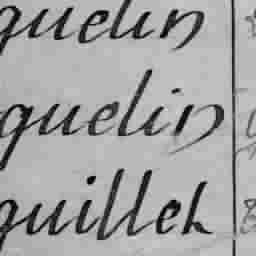 quelin
quelin
quillet